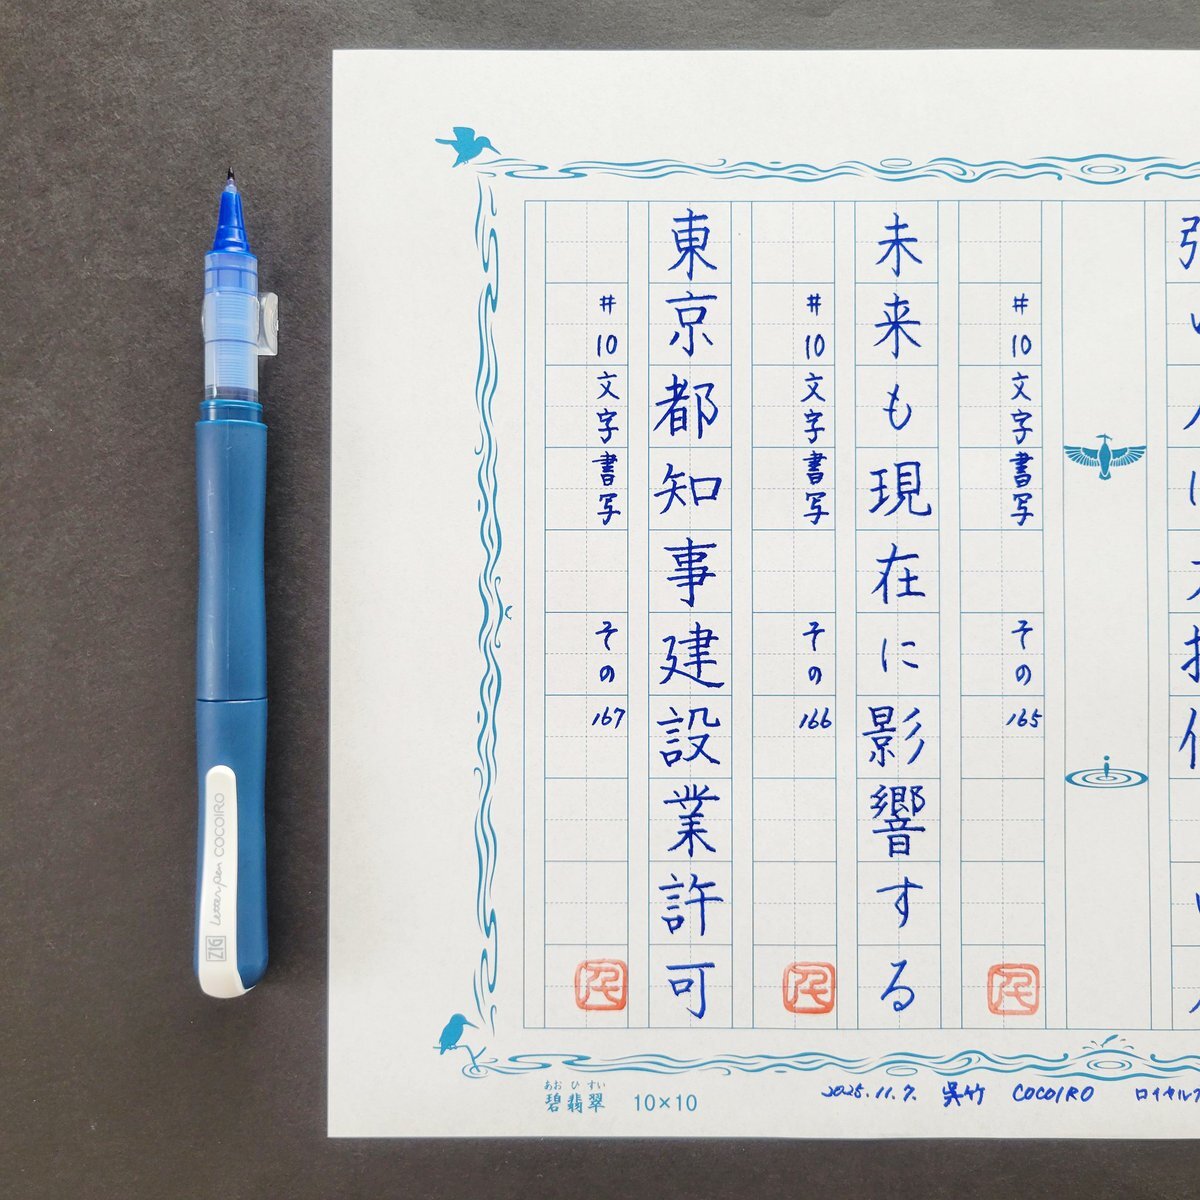 #10文字書写 その165
未来も現在に影響する
#10文字書写 その166
東京都知事建設業許可
#10文字書写 その167
あおひすい
碧翡翠 10×10
2025.11.7. 呉竹 COCOIRO ロイヤル
ZIG Letter pen COCOIRO